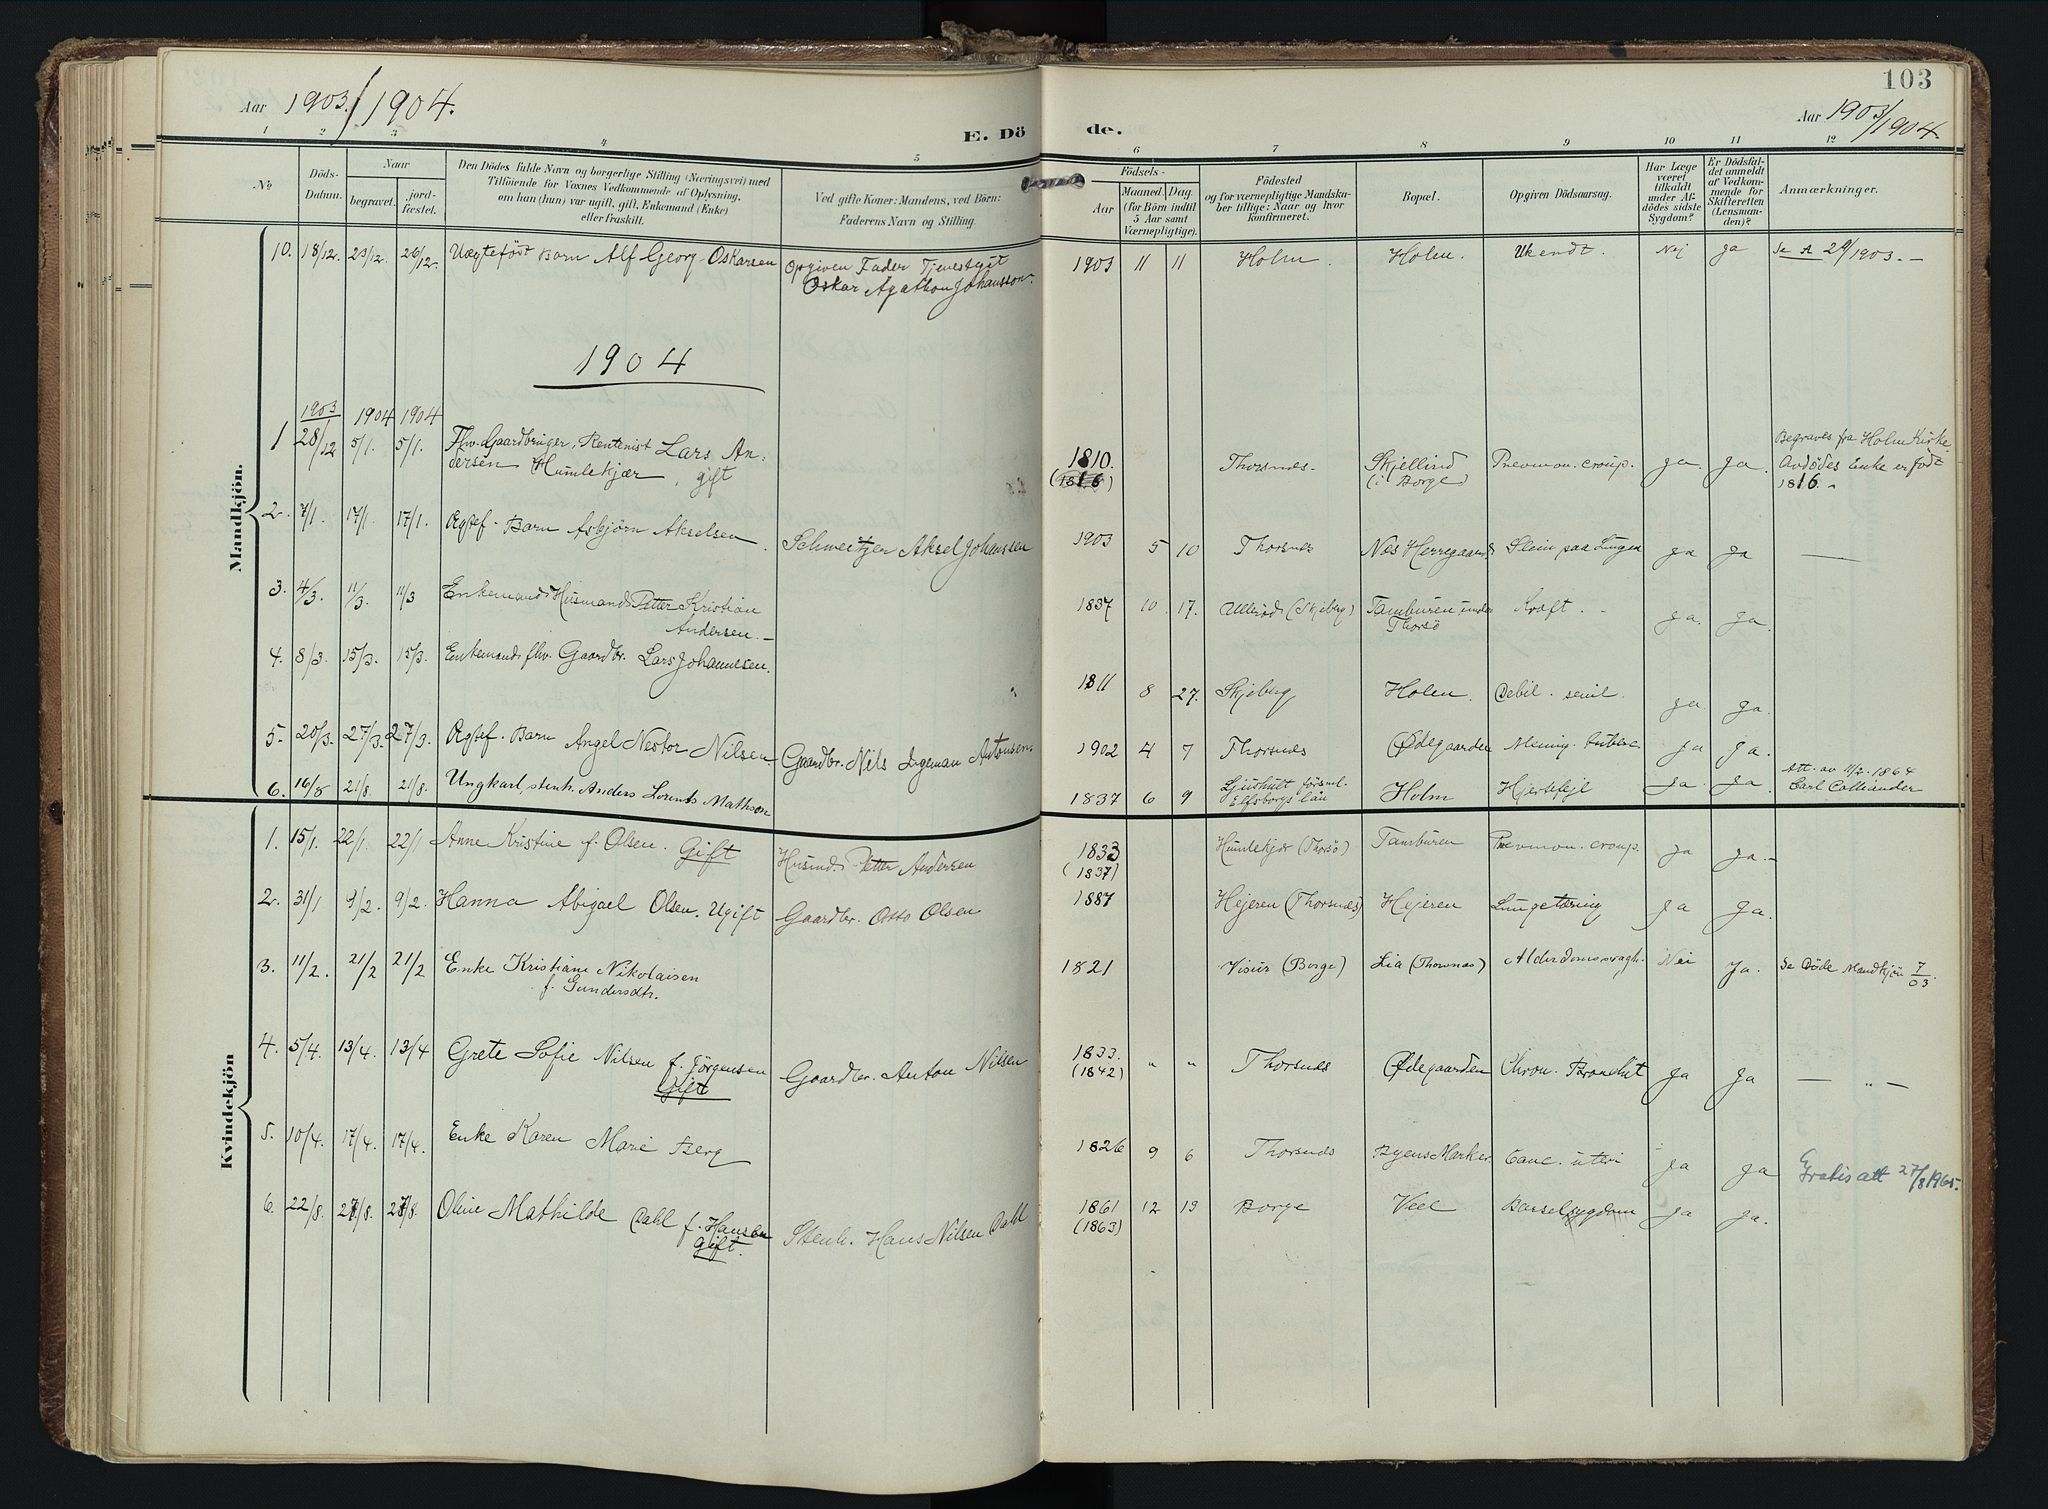 103
Aar 1903./1904.
Aar 1903/1904.
E. Döde.
1 2 3 4 5 6 7 8 9 10 11 12
No
Döds-Datum.
Naar
begravet.
jord-fæstet.
Den Dödes fulde Navn og borgerlige Stilling (Næringsvei) med
Tilföiende for Voxnes Vedkommende af Oplysning,
om han (hun) var ugift, gift, Enkemand (Enke)
eller fraskilt.
Ved gifte Koner: Mandens, ved Börn:
Faderens Navn og Stilling.
Födsels-
Aar
Maaned. Dag.
(for Börn indtil
5 Aar samt
Værnepligtige).
Födested
og for værnepligtige Mandska-
ber tillige: Naar og hvor
konfirmeret.
Bopæl.
Opgiven Dödsaarsag.
Har Læge
været
tilkaldt
under Af-
dödes sidste
Sygdom?
Er Dödsfal-
det anmeldt
af Vedkom-
mende for
Skifteretten
(Lensman-
den)?
Anmærkninger.
Mandkjön.
10. 18/12. 23/12. 26/12. Uægtefödt Barn Alf Georg Oskarsen Opgiven Fader Tjenestgut 1903 11 11 Holm. Holm. Ukendt. Nej Ja Se A 29/1903. —
Oskar Agathon Johansson.
1904
1903 1904 1904
1 28/12 5/1. 5/1. Fhv. Gaardbruger, Rentenist Lars An- 1810. Thorsnes. Skjellind Pnevmon. croup. Ja. Ja. Begraves fra Holm Kirke.
dersen Humlekjær, gift (1816) (i Borge) Avdödes Enke er födt
1816.
2. 7/1. 17/1. 17/1. Ægtef. Barn Asbjørn Akselsen. Schweitzer Aksel Johanssen 1903 5 10 Thorsnes Nes Herregaard Slim paa Lungen Ja Ja —
3. 4/3. 11/3. 11/3 Enkemand Husmand Petter Kristian 1837 10 17. Ullerød (Skjeberg) Tamburen under Kræft. Ja. Ja.
Andersen. — Thorsö
4. 8/3. 15/3. 15/3. Enkemand fhv. Gaardbr. Lars Johannesen. 1811 8 27. Skjeberg Holen. Debil. senil. Ja. Ja.
5. 20/3. 27/3. 27/3. Ægtef. Barn Angel Nestor Nilsen. Gaardbr. Nils Ingeman Antonsen 1902 4 7 Thorsnes Ødegaarden Mening. tuberc. Ja Ja.
6. 16/8 21/8. 21/8. Ungkarl, stenh. Anders Lorents Mathson 1837 6 9 Ljushult församl. Holm Hjertefejl Ja. Ja. Att. av 11/2. 1864
Elfsborgs län Carl Colliander
Kvindekjön
1. 15/1. 22/1. 22/1 Anne Kristine f. Olsen. Gift Husmd. Petter Andersen 1833 Humlekjær (Thorsö) Tamburen Pnevmon. croup. Ja Ja. —
(1837)
2. 31/1 9/2. 9/2. Hanna Abigael Olsen. Ugift Gaardbr. Otto Olsen 1887 Hejeren (Thorsnes) Hejeren Lungetæring Ja Ja.
3. 11/2. 21/2 21/2 Enke Kristiane Nikolaisen 1821 Visur (Borge) Lia (Thorsnes) Alderdomssvagh. Nei Ja. Se Döde Mandkjön 7/03
f. Gundersdtr.
4. 5/4. 13/4. 13/4 Grete Sofie Nilsen f. Jørgensen Gaardbr. Anton Nilsen 1833. " " Thorsnes Ødegaarden Chron. Bronchit Ja Ja — " —
Gift (1842)
5. 10/4. 17/4. 17/4. Enke Karen Marie Berg 1826 9 6 Thorsnes Byens Marker. Canc. uteri Ja Ja Gratis att 27/8 1965.
6. 22/8. 28/8. 28/8. Oline Mathilde Dahl f. Hansen Stenh. Hans Nilsen Dahl 1861 12 19 Borge Veel Barselsygdom Ja Ja.
gift. (1863)